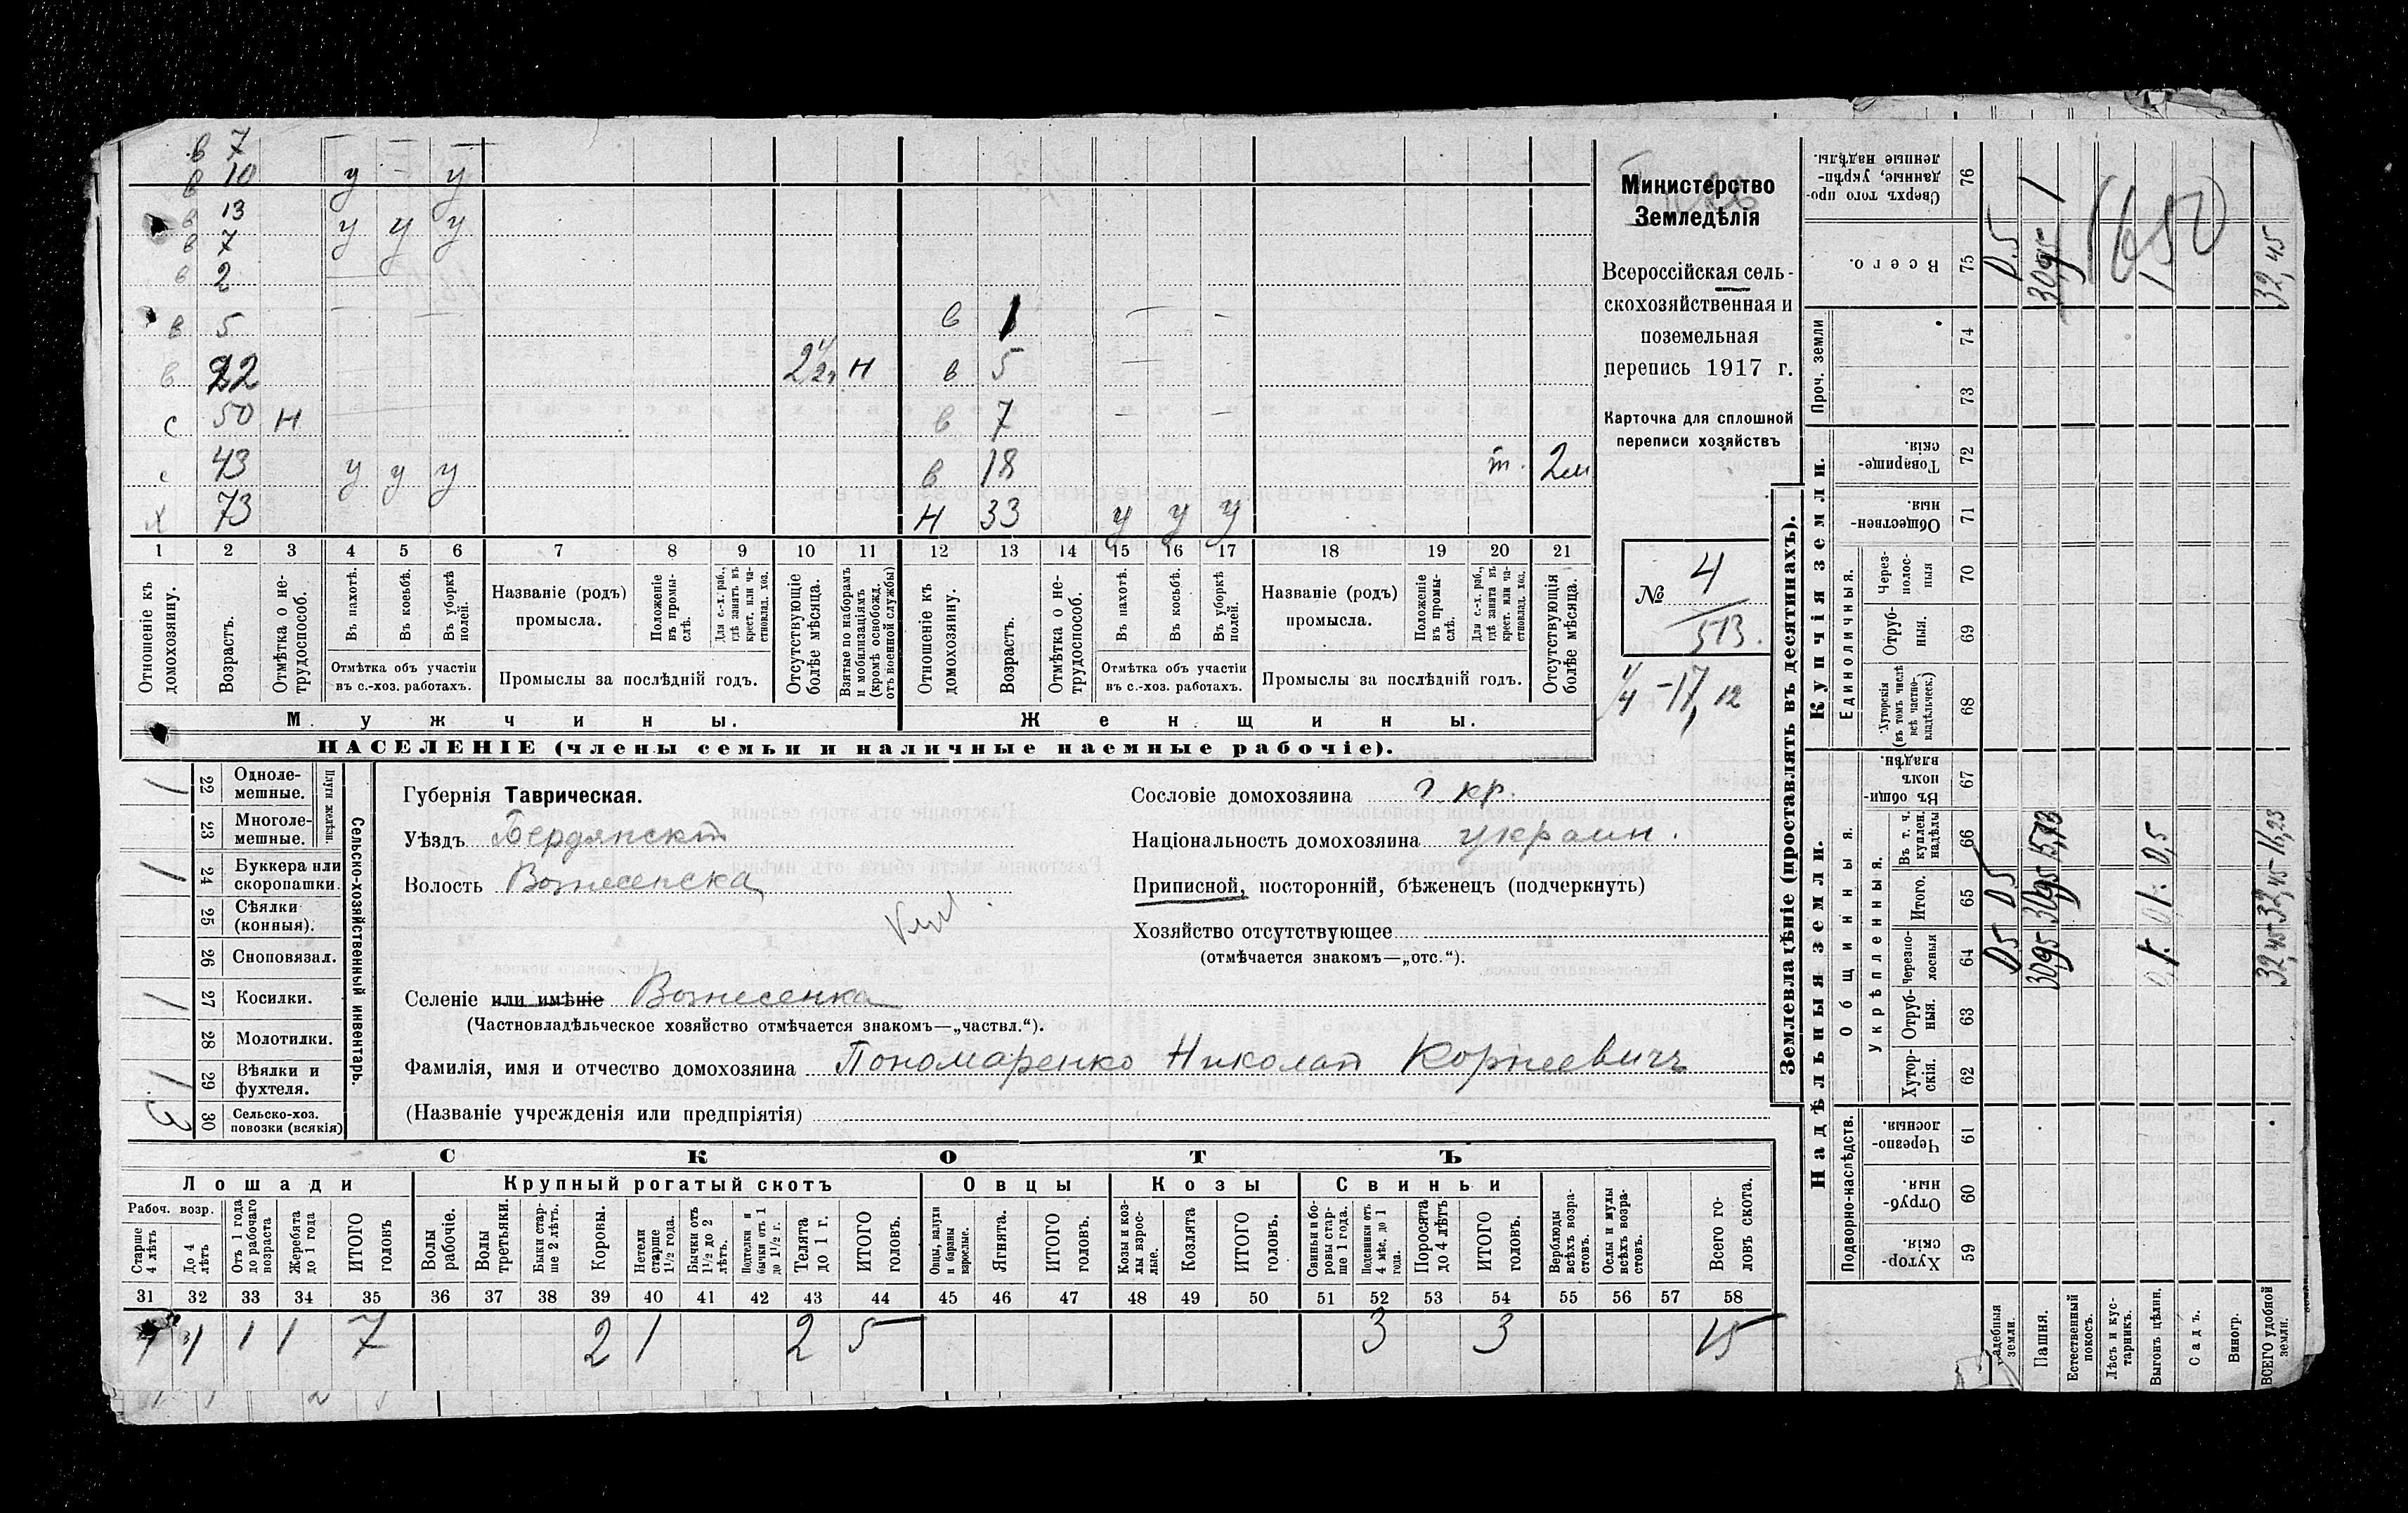 в 7 — — —
в 10 у — у
в 13 у у у
в 7
в 2
в 5 — — в 1 — —
в 22 2 1/2 г н в 5 —
с 50 н в 7 — —
с 43 у у у в 18 т. 2м
х 73 н 33 у у у
1 2 3 4 5 6 7 8 9 10 11 12 13 14 15 16 17 18 19 20 21
Отношеніе къ домохозяину.
Возрастъ.
Отмѣтка о нетрудоспособ.
Въ пахотѣ.
Въ косьбѣ.
Въ уборкѣ полей.
Отмѣтка объ участіи въ с.-хоз. работахъ.
Названіе (родъ) промысла.
Положеніе въ промыслѣ.
Для с.-х. раб., гдѣ занятъ въ крест. или частновлад. хоз.
Промыслы за послѣдній годъ.
Отсутствующіе болѣе мѣсяца.
Взятые по наборамъ и мобилизаціямъ (кромѣ освобожд. отъ военной службы)
Отношеніе къ домохозяину.
Возрастъ.
Отмѣтка о нетрудоспособ.
Въ пахотѣ.
Въ косьбѣ.
Въ уборкѣ полей.
Отмѣтка объ участіи въ с.-хоз. работахъ.
Названіе (родъ) промысла.
Положеніе въ промыслѣ.
Для с.-х. раб., гдѣ занята въ крест. или частновлад. хоз.
Промыслы за послѣдній годъ.
Отсутствующія болѣе мѣсяца.
Мужчины. Женщины.
НАСЕЛЕНІЕ (члены семьи и наличные наемные рабочіе).
Министерство
Земледѣлія
Всероссійская сель-
скохозяйственная и
поземельная
перепись 1917 г.
Карточка для сплошной
переписи хозяйствъ
№ 4
513.
1/4 -17, 12
Сельско-хозяйственный инвентарь.
Плуги желѣзн.
22 Одноле-мешные. 1
23 Многоле-мешные.
24 Буккера или скоропашки. 1
25 Сѣялки (конныя).
26 Сноповязал.
27 Косилки. 1
28 Молотилки.
29 Вѣялки и фухтеля. 1
30 Сельско-хоз. повозки (всякія) 3
Губернія Таврическая.
Уѣздъ Бердянскій
Волость Вознесенская
Селеніе или имѣніе Вознесенка
(Частновладѣльческое хозяйство отмѣчается знакомъ—„частвл.“).
Фамилія, имя и отчество домохозяина Пономаренко Николай Корнеевичъ
(Названіе учрежденія или предпріятія)
Сословіе домохозяина г. кр.
Національность домохозяина украин.
Приписной, посторонній, бѣженецъ (подчеркнуть)
Хозяйство отсутствующее
(отмѣчается знакомъ—„отс.“).
СКОТЪ
Лошади Крупный рогатый скотъ Овцы Козы Свиньи
Рабоч. возр.
Старше 4 лѣтъ
До 4 лѣтъ
Отъ 1 года до рабочаго возраста
Жеребята до 1 года
ИТОГО головъ
Волы рабочіе.
Волы третьяки.
Быки старше 2 лѣтъ.
Коровы.
Нетели старше 1½ года.
Бычки отъ 1½ до 2 лѣтъ.
Подтелки и бычки отъ 1 до 1½ г.
Телята до 1 г.
ИТОГО головъ.
Овцы, валухи и бараны взрослые.
Ягнята.
ИТОГО головъ.
Козы и козлы взрослые.
Козлята
ИТОГО головъ.
Свиньи и боровы старше 1 года.
Подсвинки отъ 4 мѣс. до 1 года.
Поросята до 4 лѣтъ
ИТОГО головъ.
Верблюды всѣхъ возрастовъ.
Ослы и мулы всѣхъ возрастовъ.
Всего головъ скота.
31 32 33 34 35 36 37 38 39 40 41 42 43 44 45 46 47 48 49 50 51 52 53 54 55 56 57 58
1 1 7 2 1 2 5 3 3 15
Землевладѣніе (проставлять въ десятинахъ).
Купчія земли.
Надѣльныя земли.
Сверхъ того проданные, укрѣпленные надѣлы. 76
Всего. 75 0,5 32,45
1650
Проч. земли 74 73
Товарищескія. 72
Общественныя. 71
Единоличныя.
Черезполосныя 70
Отрубныя. 69
Хуторскія (въ томъ числѣ всѣ частновладѣльческ.) 68
Общинныя.
Въ общинномъ владѣн. 67
Укрѣпленныя.
Въ т. ч. куплен. надѣлы 66 0,5 16,23
Итого. 65 0,5 30,95 32,45
Черезполосныя 64 0,5 30,95 32,45
Отрубныя. 63
Хуторскія. 62
Подворно-наслѣдств.
Черезполосныя. 61
Отрубныя. 60
Хуторскія. 59
Усадебныя земли.
Пашня.
Естественный покосъ.
Лѣсъ и кустарникъ.
Выгонъ цѣлин.
Садъ.
Виногр.
ВСЕГО удобной земли.